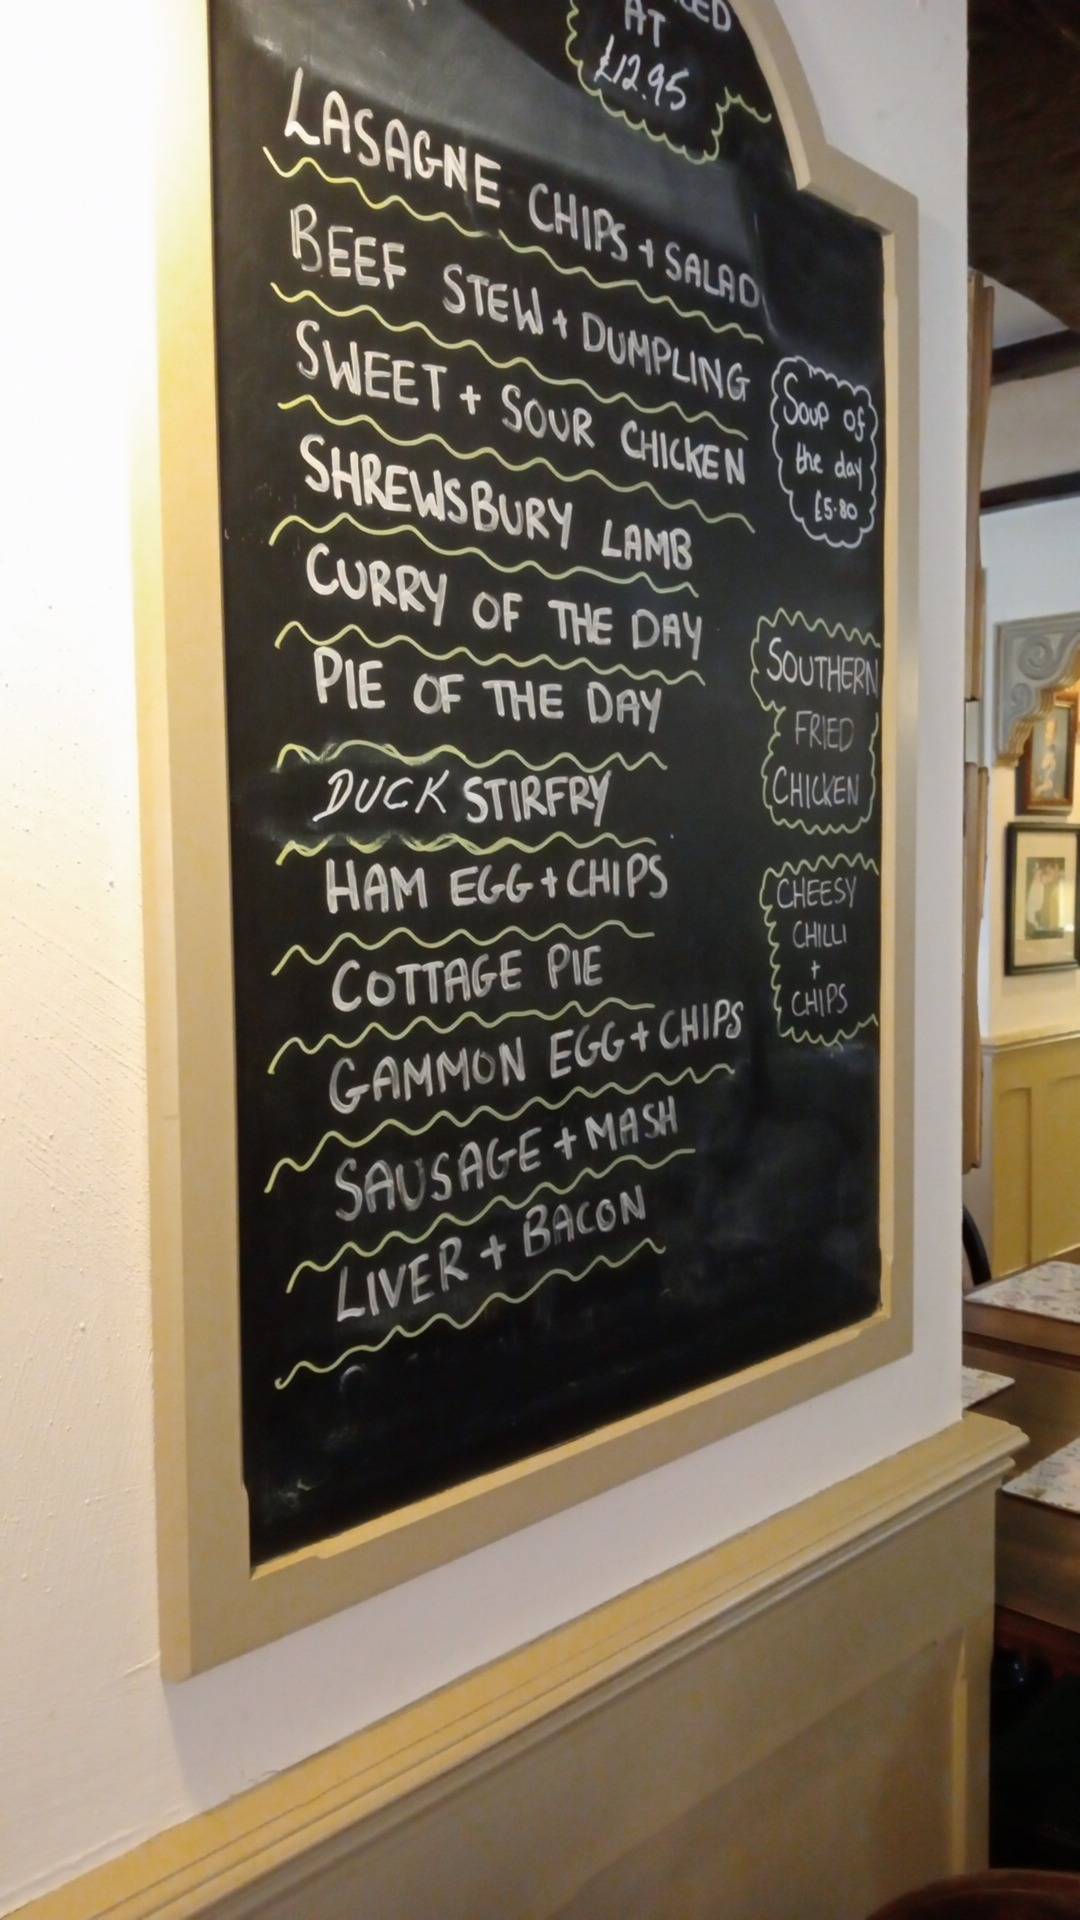 AT
£12.95
LASAGNE CHIPS + SALAD
BEEF STEW + DUMPLING
SWEET + SOUR CHICKEN
SHREWSBURY LAMB
CURRY OF THE DAY
PIE OF THE DAY
DUCK STIRFRY
HAM EGG + CHIPS
COTTAGE PIE
GAMMON EGG + CHIPS
SAUSAGE + MASH
LIVER + BACON
Soup of
the day
£5.80
SOUTHERN
FRIED
CHICKEN
CHEESY
CHILLI
+
CHIPS